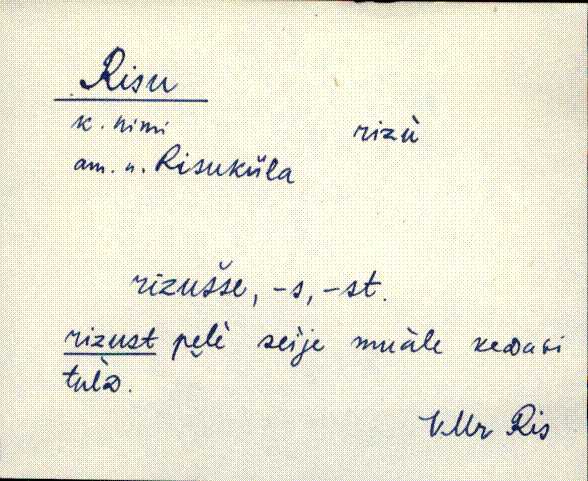 Risu
k. nimi rizù
am. n. Risuküla
rizušse, -s, -st.
rizust pèlè seije muàle
tulà.
VMr Ris